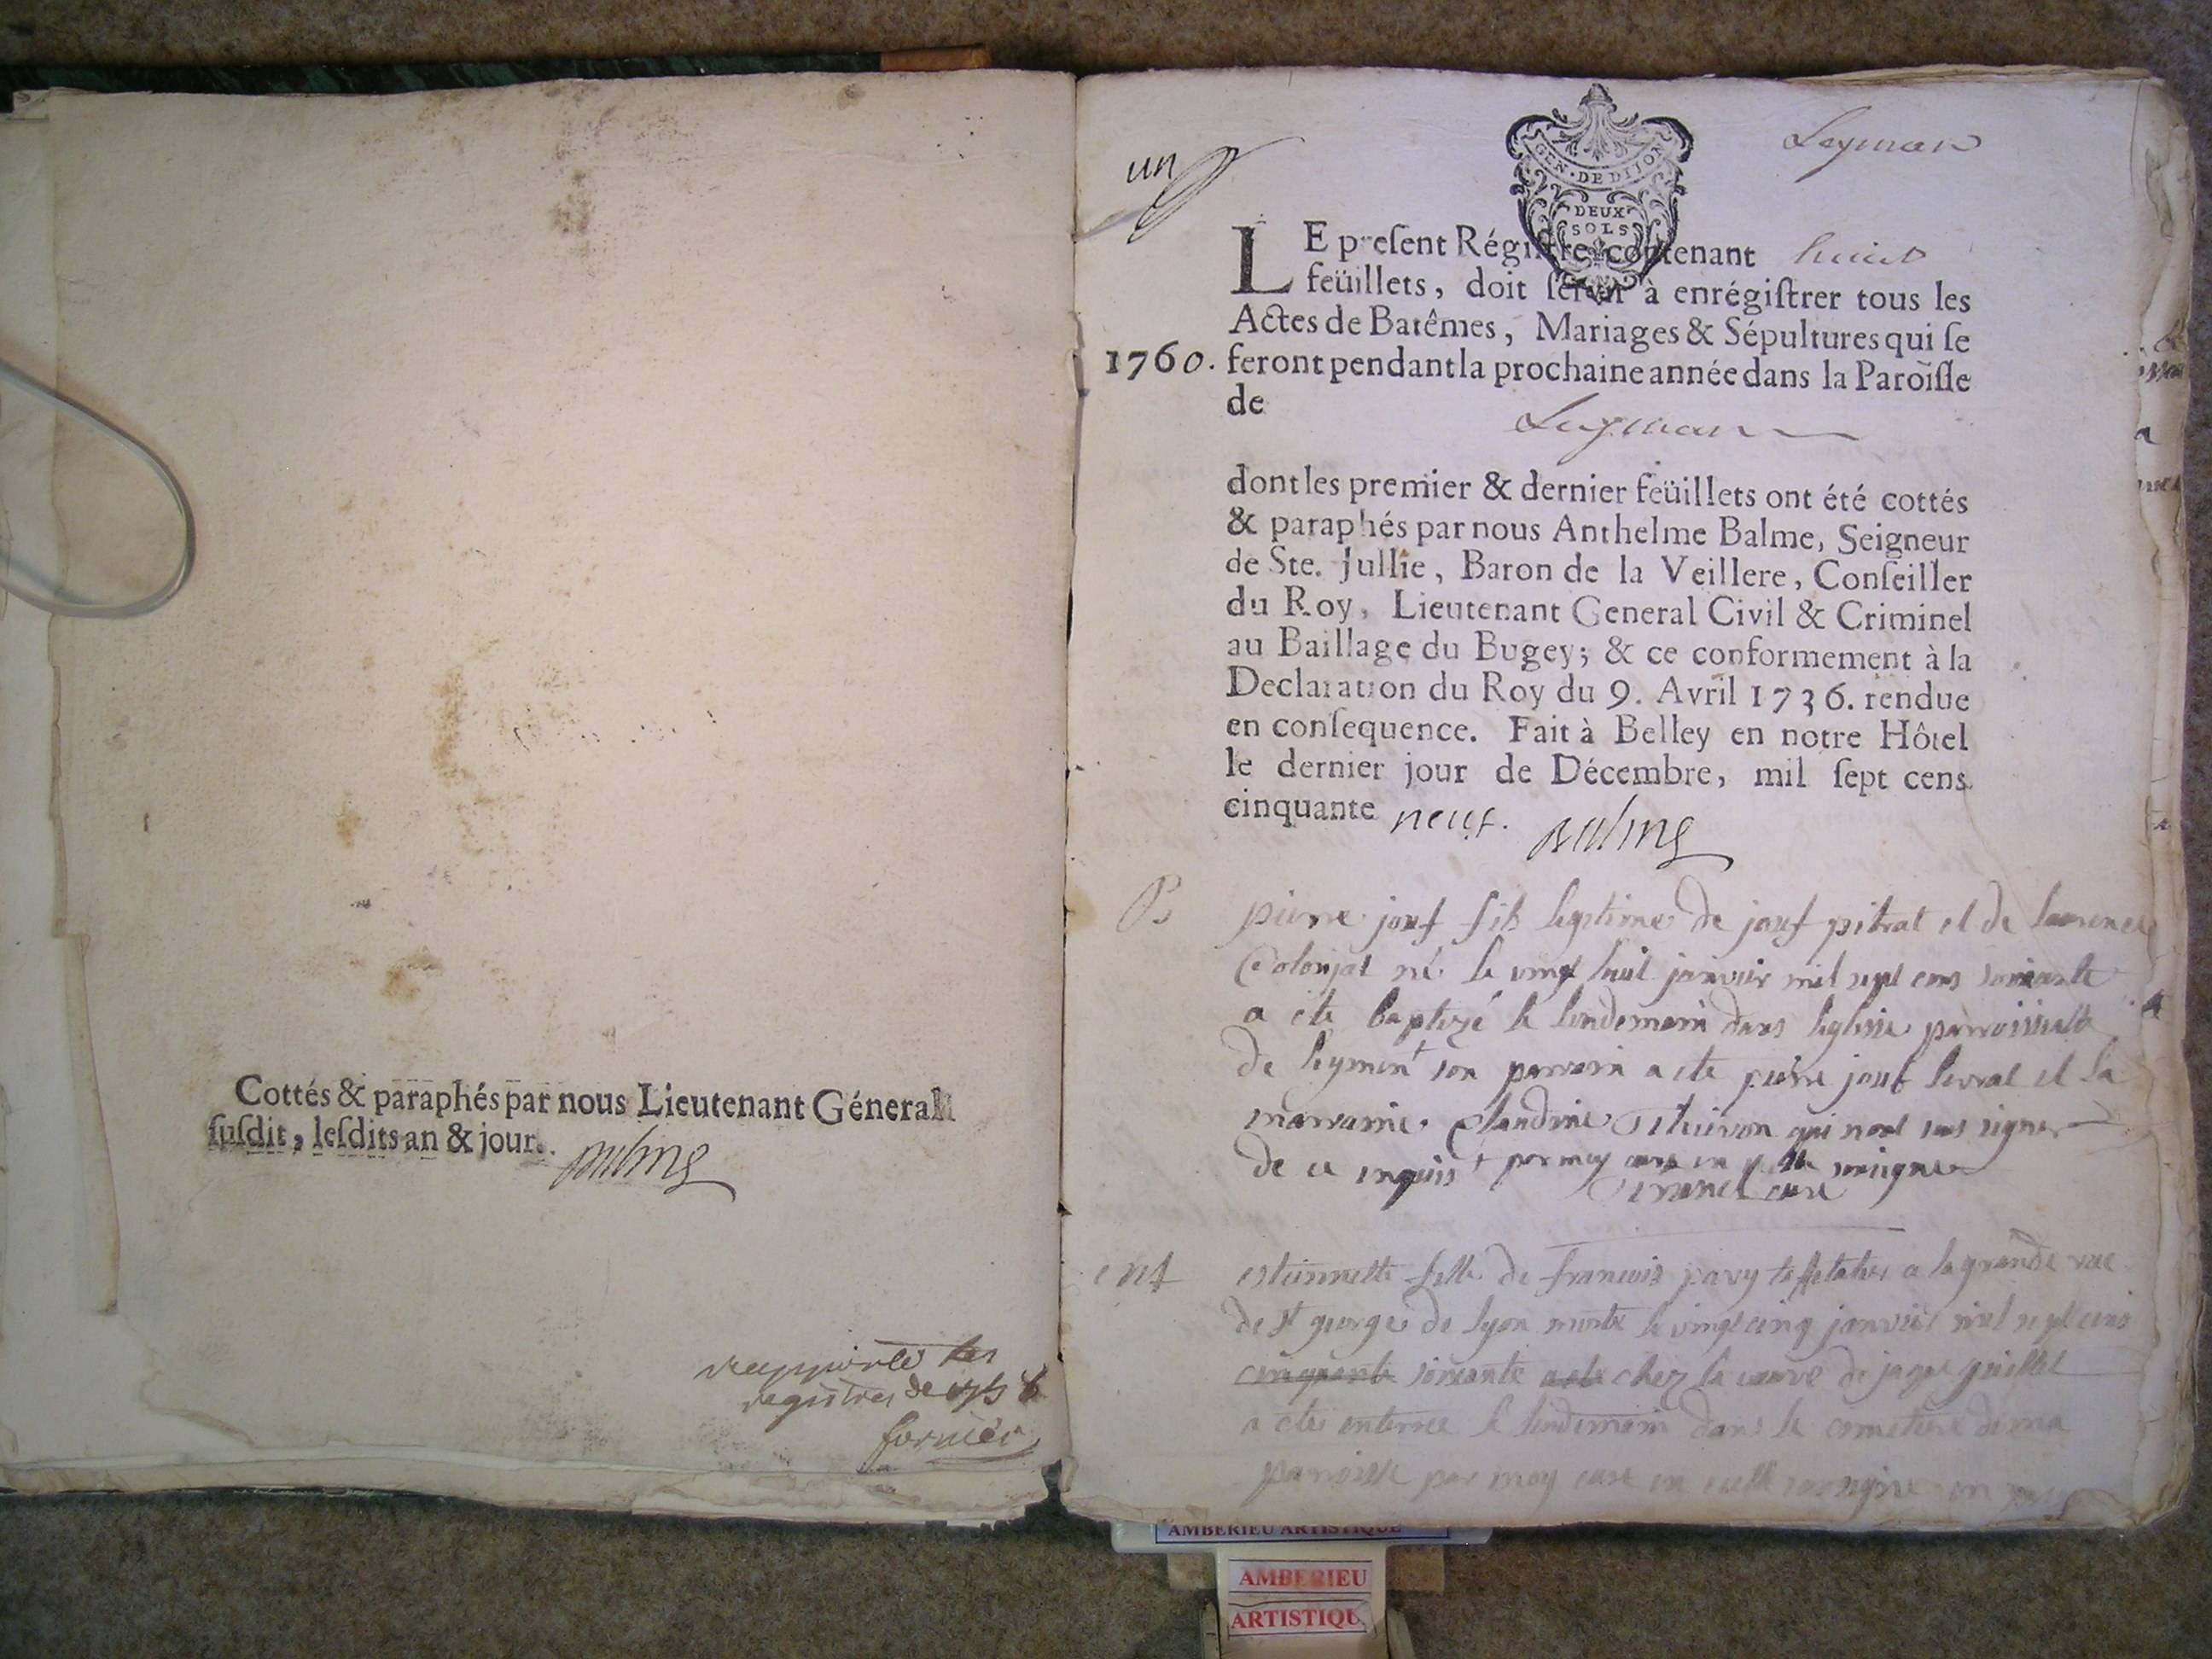 Cottés & paraphés par nous Lieutenant Géneral
ſuſdit, leſdits an & jour.
Balme
registres de
un
GEN · DE DIJON
DEUX
SOLS
Leyman
LE preſent Régiſtre contenant huict
feüillets, doit ſervir à enrégiſtrer tous les
Actes de Batêmes, Mariages & Sépultures qui ſe
1760. feront pendant la prochaine année dans la Paroiſſe
de
Leyman
dont les premier & dernier feüillets ont été cottés
& paraphés par nous Anthelme Balme, Seigneur
de Ste. Jullie, Baron de la Veillere, Conſeiller
du Roy, Lieutenant General Civil & Criminel
au Baillage du Bugey; & ce conformement à la
Declaration du Roy du 9. Avril 1736. rendue
en conſequence. Fait à Belley en notre Hôtel
le dernier jour de Décembre, mil ſept cens
cinquante neuf. Balme
B
pierre fils legitime de pitrat et de
né le vingt huit janvier mil sept cens soixante
a ete baptizé le lendemain dans leglise parroissialle
de leyment son parrain a ete pierre et la
marraine Claudine qui nont sus signer
de ce enquis par moy curé en
curé
ent
estiennette fille de francois pavy a la grande rue
de st george de lyon morte le vingt cinq janvier mil sept cens
cinquante soixante chez la veuve de guillet
a ete enterree le lendemain dans le cimetiere de ma
parroisse par moy curé en
AMBERIEU ARTISTIQUE
AMBERIEU
ARTISTIQU